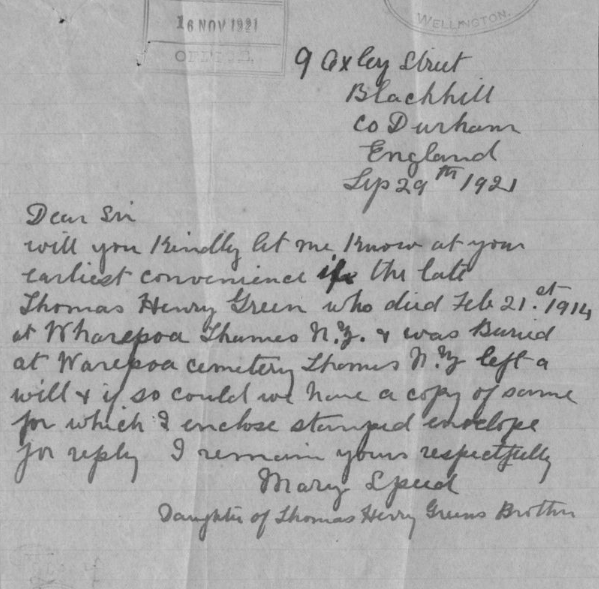 16 NOV 1921
WELLINGTON.
9 Oxley Street
Blackhill
Co Durham
England
Sep 29th 1921
Dear Sir
will you Kindly let me Know at your
earliest convenience if the late
Thomas Henry Green who died Feb 21.st 1914
at Wharepoa Thames N.Z. & was Buried
at Warepoa cemetery Thames N.Z left a
will & if so could we have a copy of same
for which I enclose stamped envelope
for reply I remain yours respectfully
Mary Speed
Daughter of Thomas Henry Greens Brother